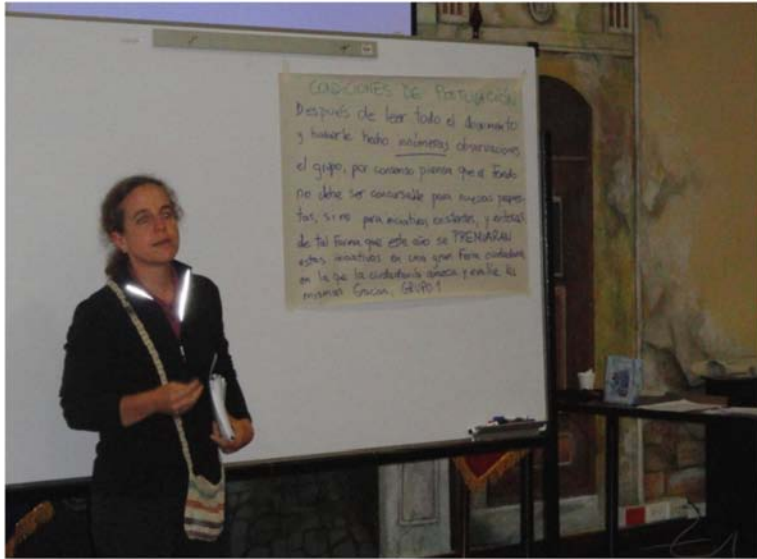 CONDICIONES DE POSTULACIÓN
Después de leer todo el documento
y haberle hecho inúmeras observaciones
el grupo, por consenso piensa que el Fondo
no debe ser concursable para nuevas propues-
tas, si no para iniciativas existentes, y
de tal forma que este año se PREMIARAN
estas iniciativas en una gran Feria ciudadana
en la que la ciudadanía conozca y evalúe las
mismas Gracias, GRUPO 1